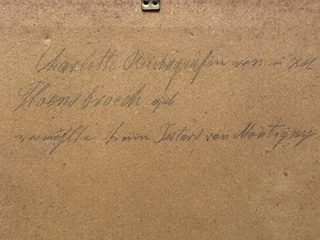 Charlotte Reichsgräfin von u zu
Hoensbroech geb
vermählte Testard von Montigny